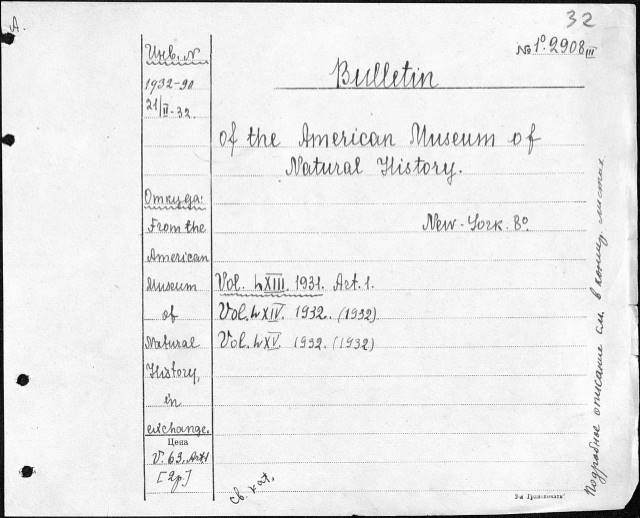 А.
32
№ 1º.2908 III
Инв. N
1932-90
21/II-32.
Bulletin
of the American Museum of
Natural History.
New-York. 8º
Откуда:
From the
American
Museum
of
Natural
History,
in
exchange.
Vol. LXIII. 1931. Art. 1.
Vol. LXIV. 1932. (1932)
Vol. LXV. 1932. (1932)
Цена
V. 63. Art 1
[2р.]
св. кат.
Подробное описание см. в